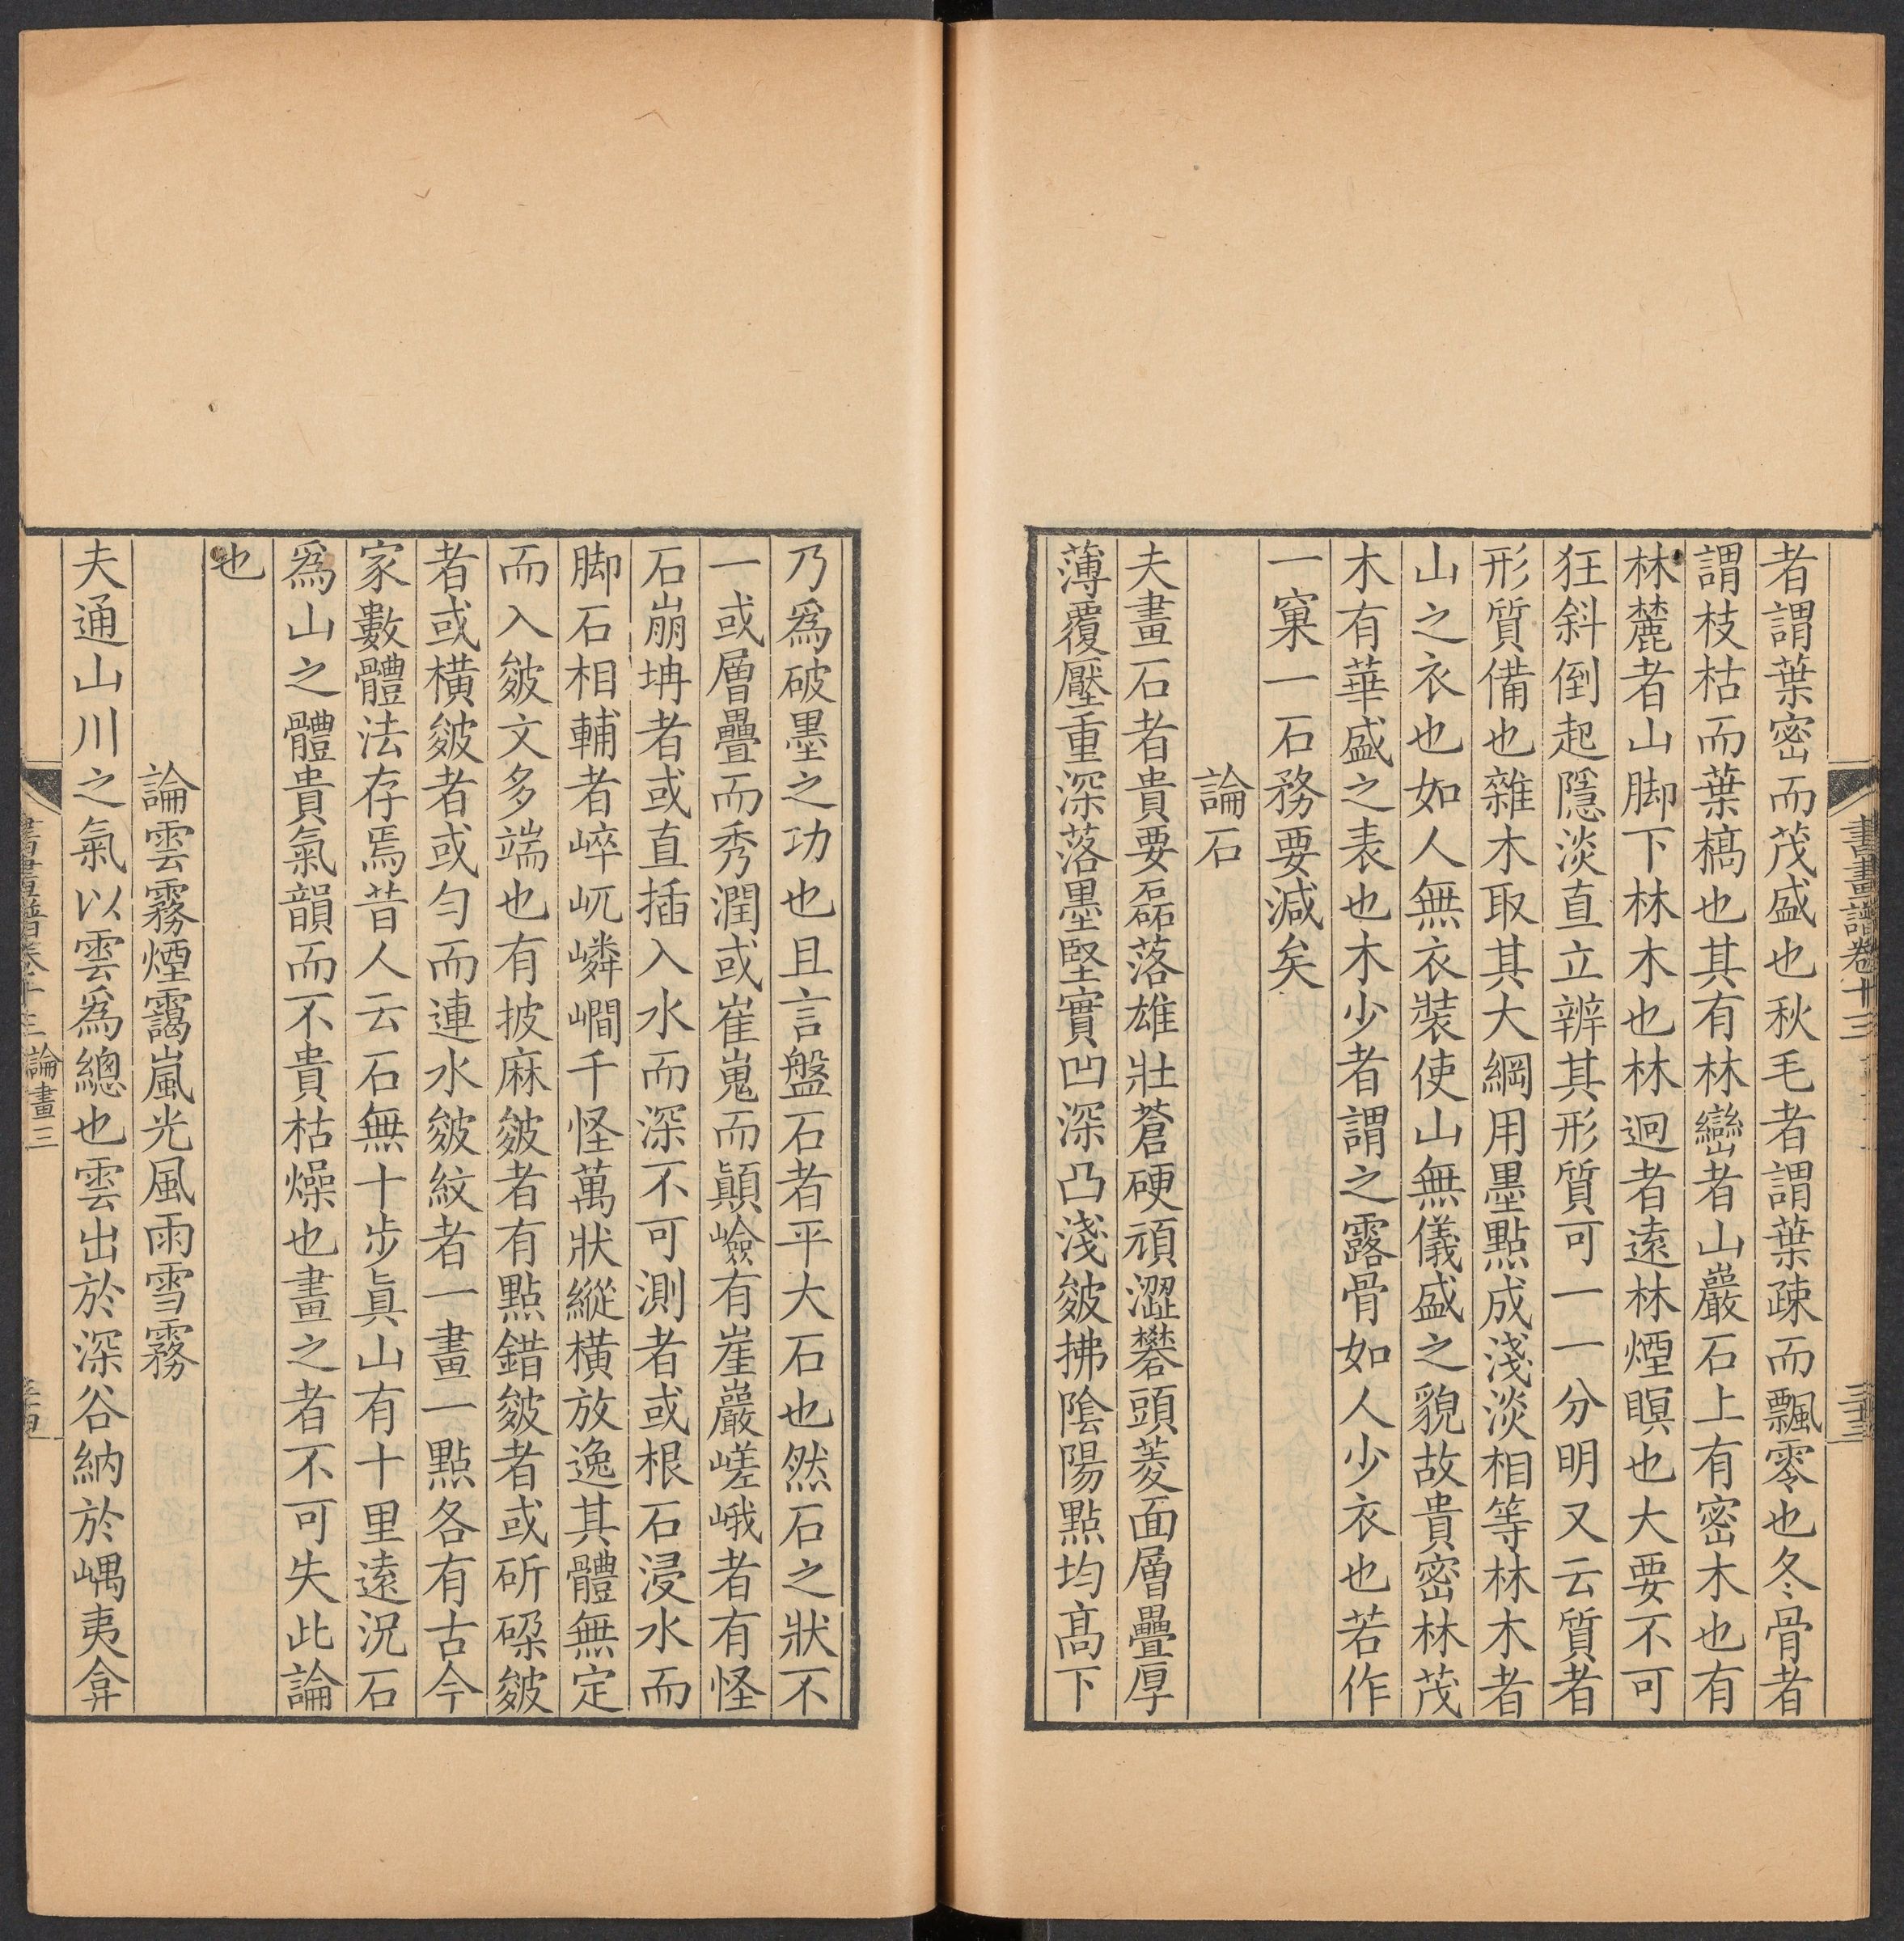 書畫譜卷十三
三十三
者謂葉密而茂盛也秋毛者謂葉疎而飄零也冬骨者
謂枝枯而葉槁也其有林巒者山巖石上有密木也有
林麓者山脚下林木也林迥者遠林煙暝也大要不可
狂斜倒起隱淡直立辨其形質可一一分明又云質者
形質備也雜木取其大綱用墨點成淺淡相等林木者
山之衣也如人無衣裝使山無儀盛之貌故貴密林茂
木有華盛之表也木少者謂之露骨如人少衣也若作
一窠一石務要減矣
論石
夫畫石者貴要磊落雄壯蒼硬頑澀礬頭菱面層疊厚
薄覆壓重深落墨堅實凹深凸淺皴拂陰陽點均高下
乃爲破墨之功也且言盤石者平大石也然石之狀不
一或層疊而秀潤或崔嵬而顛嶮有崖巖嵯峨者有怪
石崩坍者或直插入水而深不可測者或根石浸水而
脚石相輔者崒屼嶙峋千怪萬狀縱橫放逸其體無定
而入皴文多端也有披麻皴者有點錯皴者或斫磔皴
者或橫皴者或勻而連水皴紋者一畫一點各有古今
家數體法存焉昔人云石無十步眞山有十里遠況石
爲山之體貴氣韻而不貴枯燥也畫之者不可失此論
也
論雲霧煙靄嵐光風雨雪霧
夫通山川之氣以雲爲總也雲出於深谷納於嵎夷弇
書畫譜卷十三 論畫三
三十四